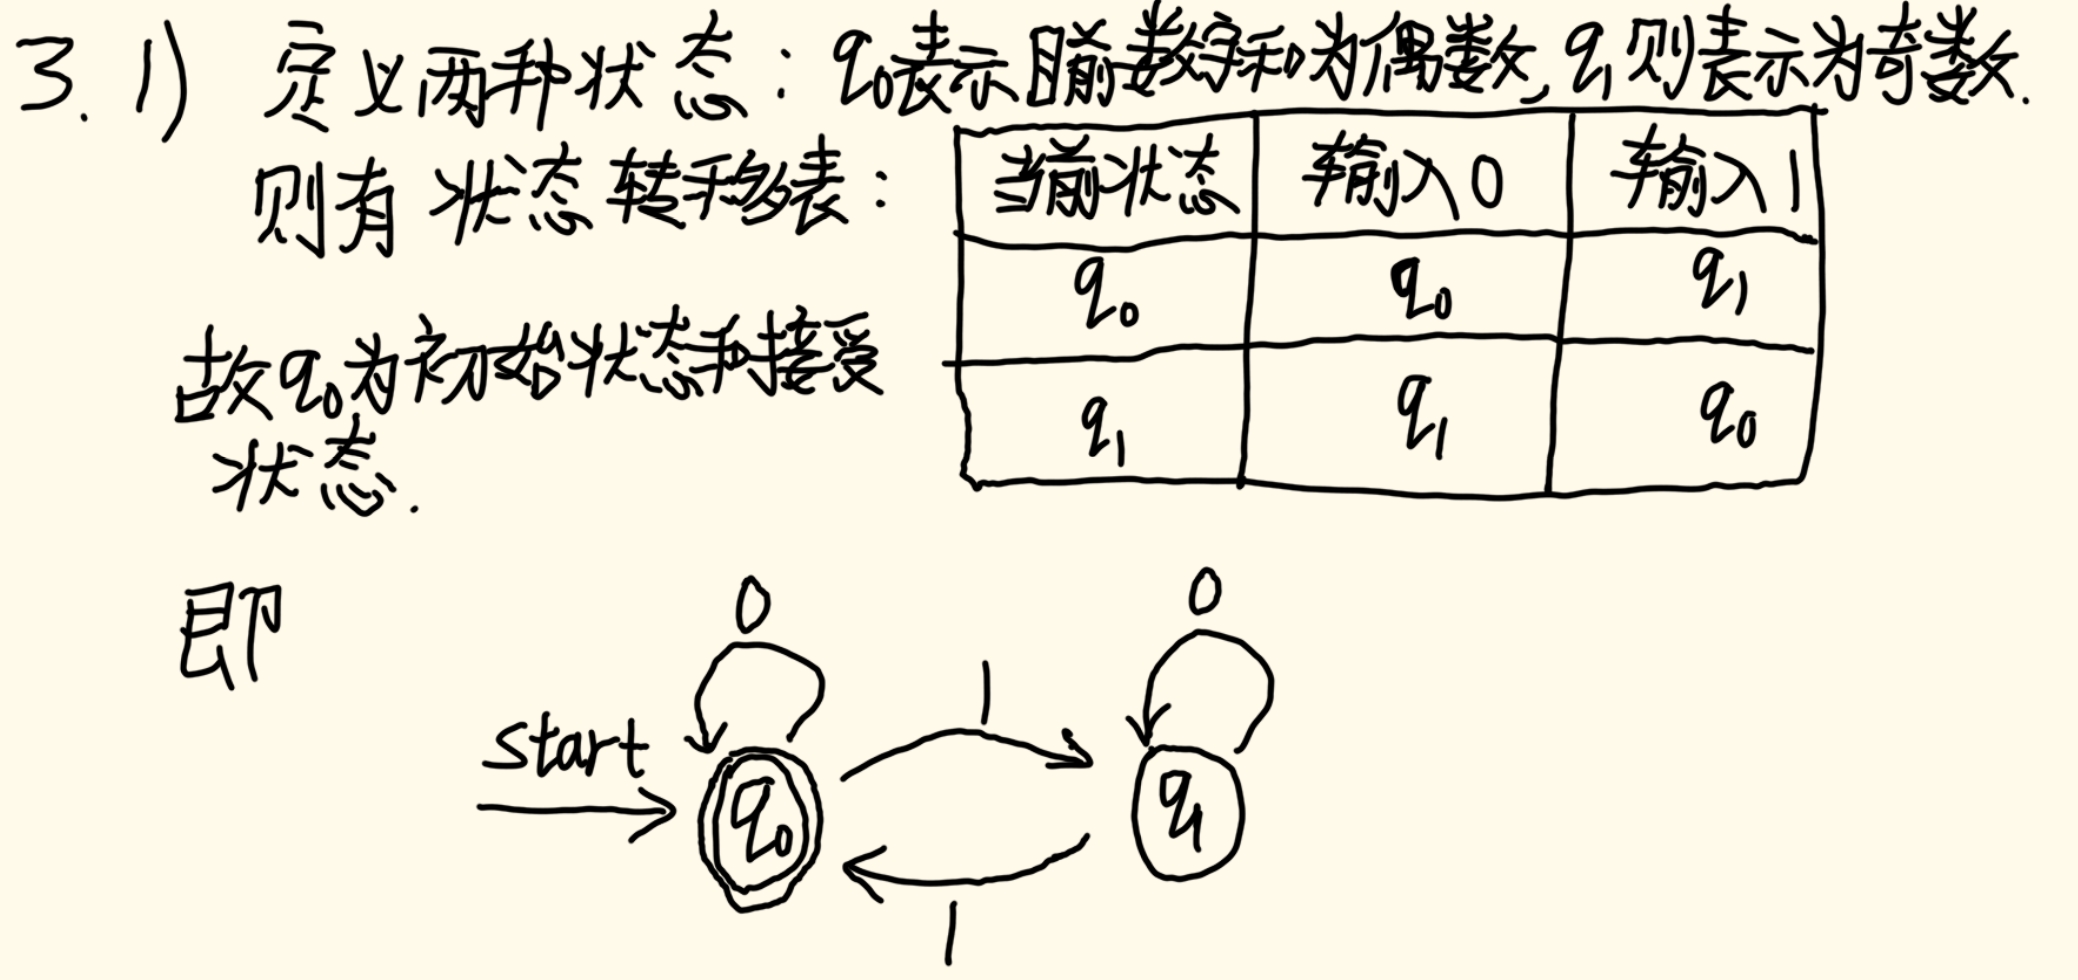 3. 1) 定义两种状态：q₀表示目前数字和为偶数，q₁则表示为奇数.
则有状态转移表：
当前状态 输入0 输入1
q₀ q₀ q₁
q₁ q₁ q₀
故q₀为初始状态和接受
状态.
即
0 0
1
start
q₀ q₁
1